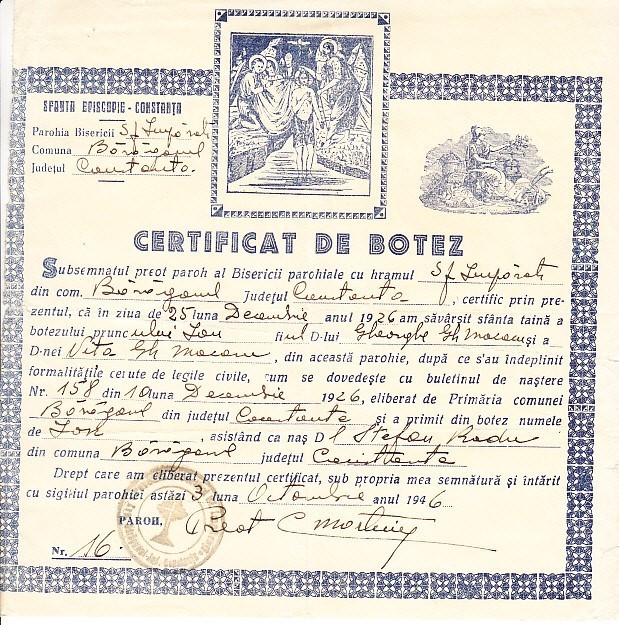 SFANTA EPISCOPIE - CONSTANȚA
Parohia Bisericii Sf. Împărați
Comuna Bărăganul
Județul Constanța.
CERTIFICAT DE BOTEZ
Subsemnatul preot paroh al Bisericii parohiale cu hramul Sf. Împărați
din com. Bărăganul Județul Constanța, certific prin pre-
zentul, că in ziua de 25 luna Decembrie anul 1926 am săvârșit sfânta taină a
botezului pruncului Ion fiul D-lui Gheorghe Gh Mocanu și a
D-nei Vita Gh Mocanu, din această parohie, după ce s'au îndeplinit
formalitățile cerute de legile civile, cum se dovedește cu buletinul de naștere
Nr. 158 din 10 luna Decembrie 1926, eliberat de Primăria comunei
Bărăganul din județul Constanta și a primit din botez numele
de Ion, asistând ca naș Dl Stefan Radu
din comuna Bărăganul județul Constanta
Drept care am eliberat prezentul certificat, sub propria mea semnătură și întărit
cu sigiliul parohiei astăzi 3 luna Octombrie anul 1946
PAROH, Preot C
Nr. 16.